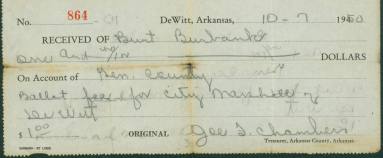 No. 864 DeWitt, Arkansas, 10-7 1950
RECEIVED OF Burt Burbank
One and no/100 DOLLARS
On Account of Gen. County
Ballot fee for City Marshall of
DeWitt
$1.00 ORIGINAL Joe S. Chambers
Treasurer, Arkansas County, Arkansas